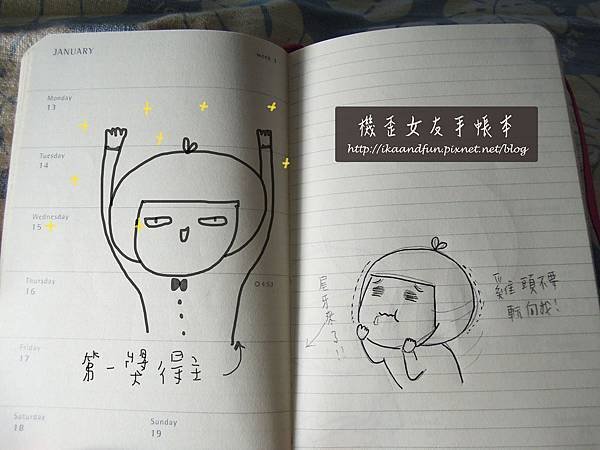 JANUARY
week 3
Monday
13
Tuesday
14
Wednesday
15
Thursday
16
4:53
Friday
17
Saturday
18
Sunday
19
第一獎得主
機歪女友手帳本
http://ikaandfun.pixnet.net/blog
尾牙來了!!
雞頭不要
轉向我!